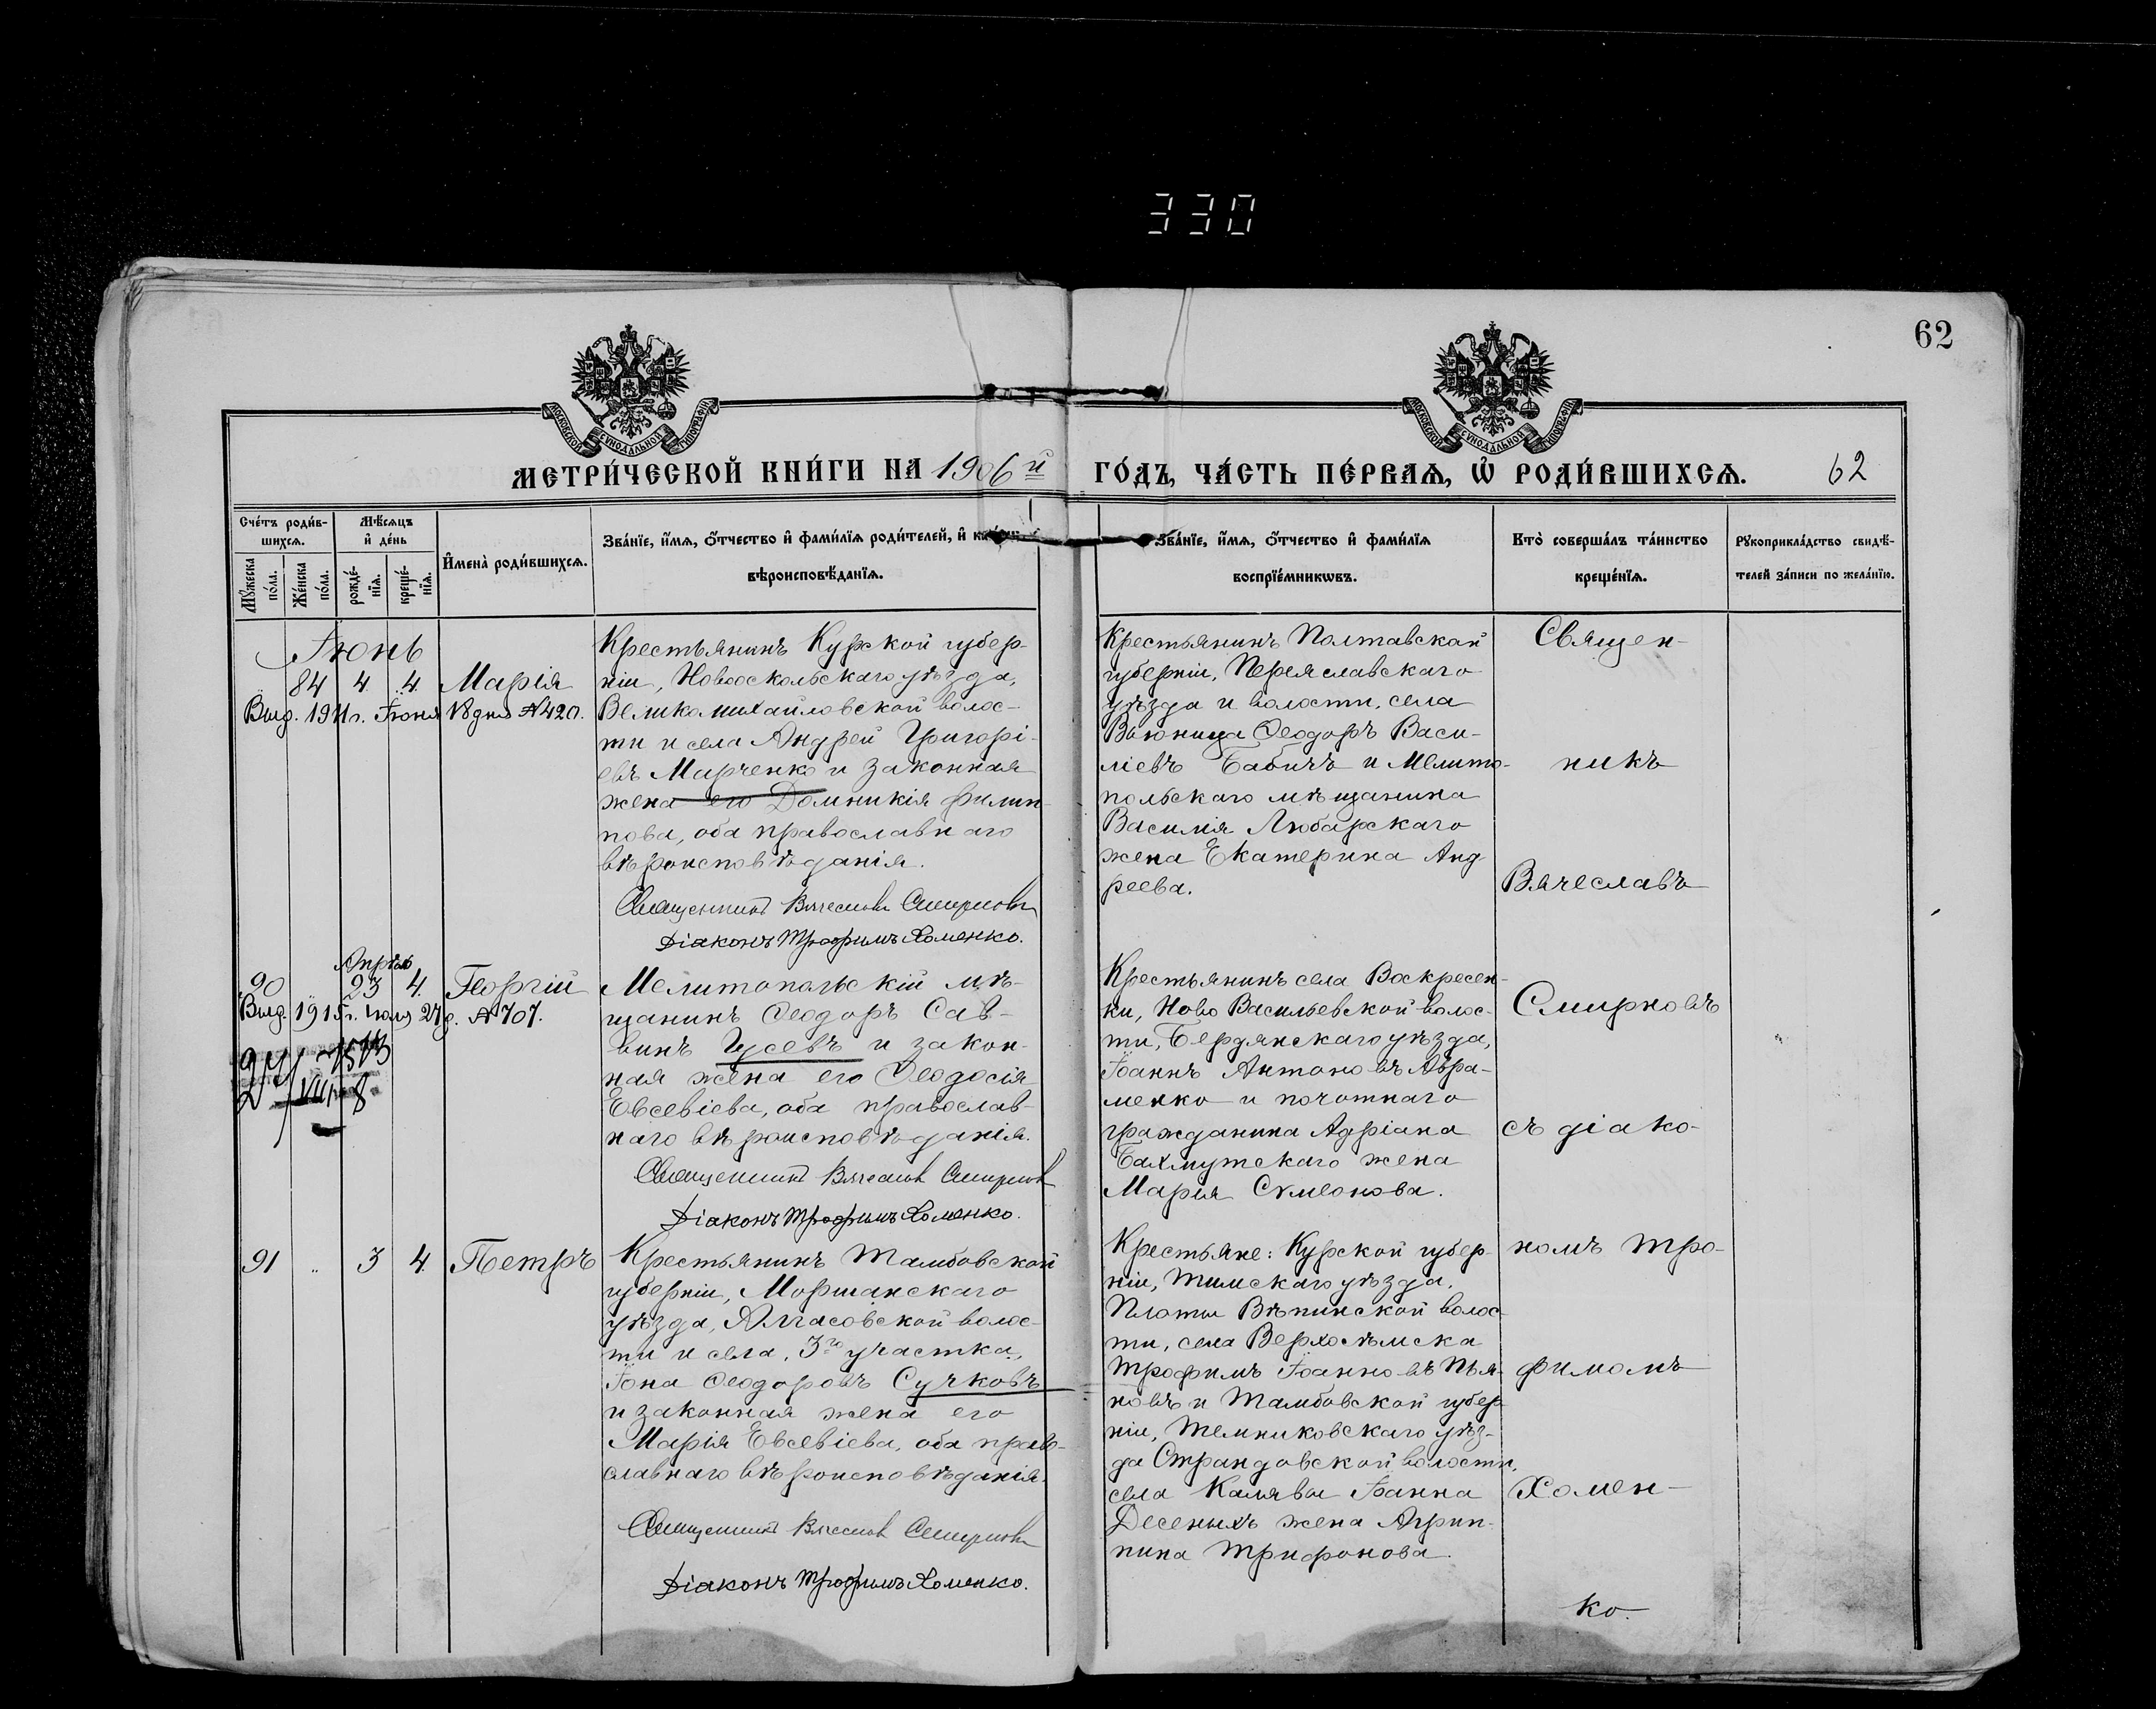 330
62
МОСКОВСКОЙ СѴНОДАЛЬНОЙ ТИПОГРАФІИ
МОСКОВСКОЙ СѴНОДАЛЬНОЙ ТИПОГРАФІИ
МЕТРИ́ЧЕСКОЙ КНИ́ГИ НА 1906 й
ГО́ДЪ, ЧА́СТЬ ПЕ́РВАѦ, Ѡ РОДИ́ВШИХСѦ. 62
Сче́тъ роди́в-
шихсѧ.
Мѣ́сѧцъ
и҆ де́нь
Мꙋ́жеска
по́ла.
Же́нска
по́ла.
рожде́-
нїѧ.
креще́-
нїѧ.
И҆мена̀ роди́вшихсѧ.
Зва́нїе, и҆́мѧ, ѻ҆́тчество и҆ фами́лїѧ роди́телей, и҆
вѣроисповѣ́данїѧ.
Зва́нїе, и҆́мѧ, ѻ҆́тчество и҆ фами́лїѧ
воспрїе́мникѡвъ.
Кто̀ соверша́лъ та́инство
креще́нїѧ.
Рꙋкоприкла́дство свидѣ́-
телей за́писи по жела́нїю.
Іюнь
84 4. 4. Марія
Выд. 1911г. Іюня 18 дня №420.
Крестьянинъ Курской губер-
ніи, Новооскольскаго уѣзда,
Великомихайловской волос-
ти и села Андрей Григорі-
евъ Марченко и законная
жена его Домникія Филип-
пова, оба православнаго
вѣроисповѣданія.
Священникъ Вячеславъ Смирновъ
Діаконъ Трофимъ Хоменко.
Крестьянинъ Полтавской
губерніи, Переяславскаго
уѣзда и волости, села
Вьюница Ѳеодоръ Васи-
ліевъ Бабичъ и Мелито-
польскаго мѣщанина
Василія Любарскаго
жена Екатерина Анд
реева.
Священ-
никъ
Вячеславъ
Апрѣль
90 .. 23 4. Георгій
Выд. 1915г. Іюля 27 д. №707.
Мелитопольскій мѣ-
щанинъ Ѳеодоръ Сав-
винъ Гусевъ и закон-
ная жена его Ѳеодосія
Евсевіева, оба православ-
наго вѣроисповѣданія.
Священникъ Вячеславъ Смирновъ
Діаконъ Трофимъ Хоменко.
Крестьянинъ села Воскресен-
ки, Ново Васильевской волос-
ти, Бердянскаго уѣзда,
Іоаннъ Антоновъ Авра-
менко и почотнаго
гражданина Адріана
Бахмутскаго жена
Марія Сѵмеонова.
Смирновъ
съ діако-
91 .. 3 4. Петръ
Крестьянинъ Тамбовской
губерніи, Моршанскаго
уѣзда, Алгасовской волос-
ти и села, 3го участка,
Іона Ѳеодоровъ Сучковъ
и законная жена его
Марія Евсевіева, оба право-
славнаго вѣроисповѣданія.
Священникъ Вячеславъ Смирновъ
Діаконъ Трофимъ Хоменко.
Крестьяне: Курской губер-
ніи, Тимскаго уѣзда,
Плоты Вѣпинской волос-
ти, села
Трофимъ Іоанновъ Пья-
новъ и Тамбовской губер
ніи, Темниковскаго уѣз-
да Страндовской волости,
села Калявы Іоанна
Десеныхъ жена Агрип-
пина Трифонова.
номъ Тро-
фимомъ
Хомен-
ко.